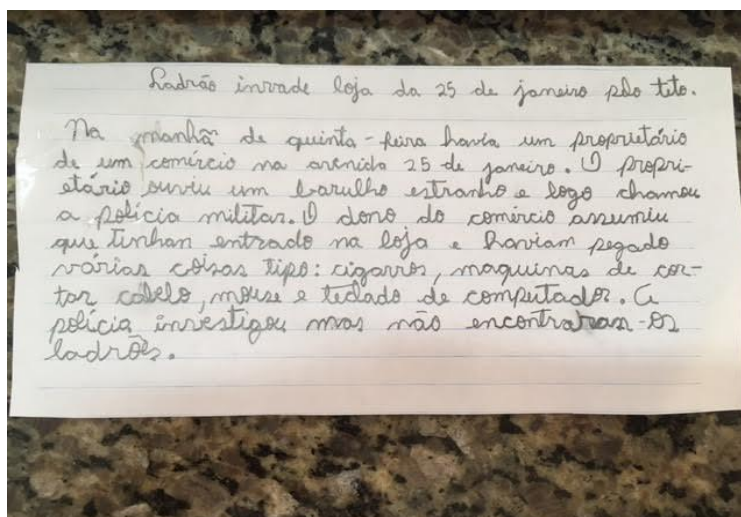 Ladrão invade loja da 25 de janeiro pelo teto.
Na manhã de quinta-feira havia um proprietário
de um comércio na avenida 25 de janeiro. O propri-
etário ouviu um barulho estranho e logo chamou
a polícia militar. O dono do comércio assumiu
que tinhan entrado na loja e haviam pegado
várias coisas tipo: cigarros, maquinas de cor-
tar cabelo, mouse e teclado de computador. A
polícia investigou mas não encontraran-os
ladrões.